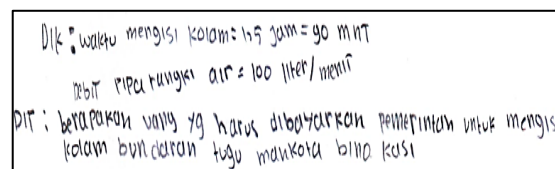 DIK : waktu mengisi kolam = 1,5 jam = 90 mnt
Debit pipa tangki air = 100 liter/menit
DIT : berapakan uang yg harus dibayarkan pemerintah untuk mengis
kolam bundaran tugu mahkota bino kasi